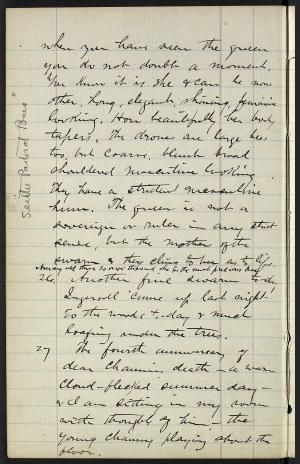 when you have seen the queen
you do not doubt a moment.
You know it is she & can be none
other, long, elegant, shining, feminine
looking. How beautifully her body
tapers, the drones are large bees
too, but coarse, blunt broad
shouldered masculine looking
They have a strident masculine
hum. The queen is not a
sovereign or ruler in any strict
sense, but the mother of the
swarm & they cling to her as to life.
Among all those so she is so much precious
26. Another fine swarm to-day
Ingersoll came up last night
to the woods t-day & much
loafing under the trees.
27 The fourth anniversary of
dear Channy's death - a warm
cloud-flecked summer day -
& I am sitting in my room
with thoughts of him, the
young Channy playing about the
floor.
See the Pastoral Bees"